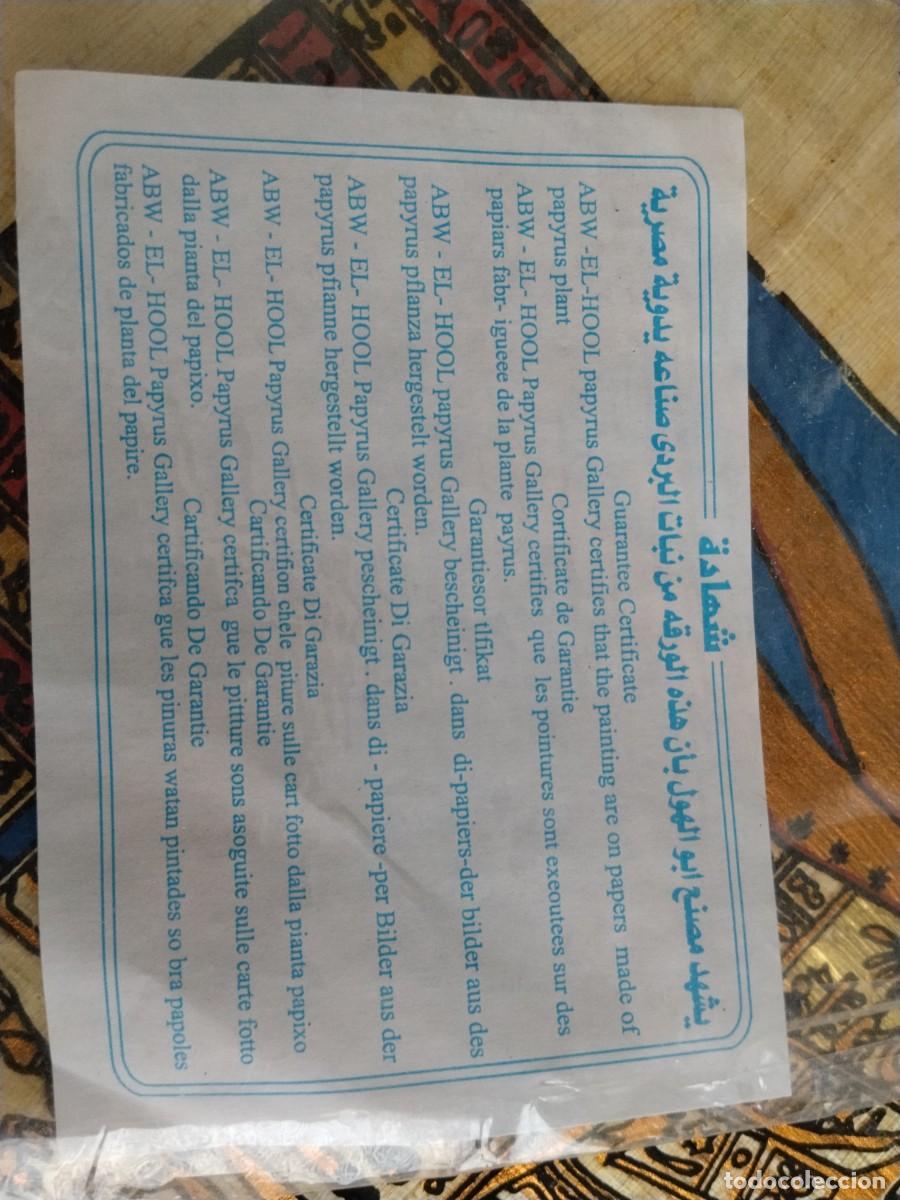 شهادة
يشهد مصنع ابو الهول بأن هذه الورقه من نبات البردى صناعه يدوية مصرية
Guarantee Certificate
ABW -EL-HOOL papyrus Gallery certifies that the painting are on papers made of
papyrus plant
Cortificate de Garantie
ABW - EL- HOOL Papyrus Gallery certifies que les pointures sont exeoutees sur des
papiars fabr- igueee de la plante payrus.
Garantiesor tlfikat
ABW - EL- HOOL papyrus Gallery bescheinigt . dans di-papiers-der bilder aus des
papyrus pflanza hergestelt worden.
Certificate Di Garazia
ABW - EL- HOOL Papyrus Gallery pescheinigt . dans di - papiere -per Bilder aus der
papyrus pfianne hergestellt worden.
Certificate Di Garazia
ABW - EL- HOOL Papyrus Gallery certifion chele piture sulle cart fotto dalla pianta papixo
Cartificando De Garantie
ABW - EL- HOOL Papyrus Gallery certifca gue le pitture sons asoguite sulle carte fotto
dalla pianta del papixo.
Cartificando De Garantie
ABW - EL- HOOL Papyrus Gallery certifca gue les pinuras watan pintades so bra papoles
fabricados de planta del papire.
todocoleccion